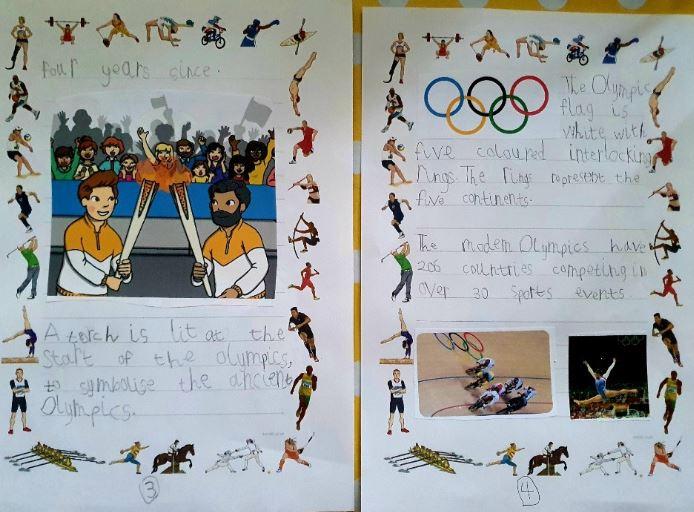 four years since.
A torch is lit at the
start of the olympics,
to symbolise the ancient
Olympics.
3
The Olympic
flag is
white with
five coloured interlocking
rings. The rings represent the
five continents.
The modern Olympics have
206 countries competing in
over 30 sports events.
4